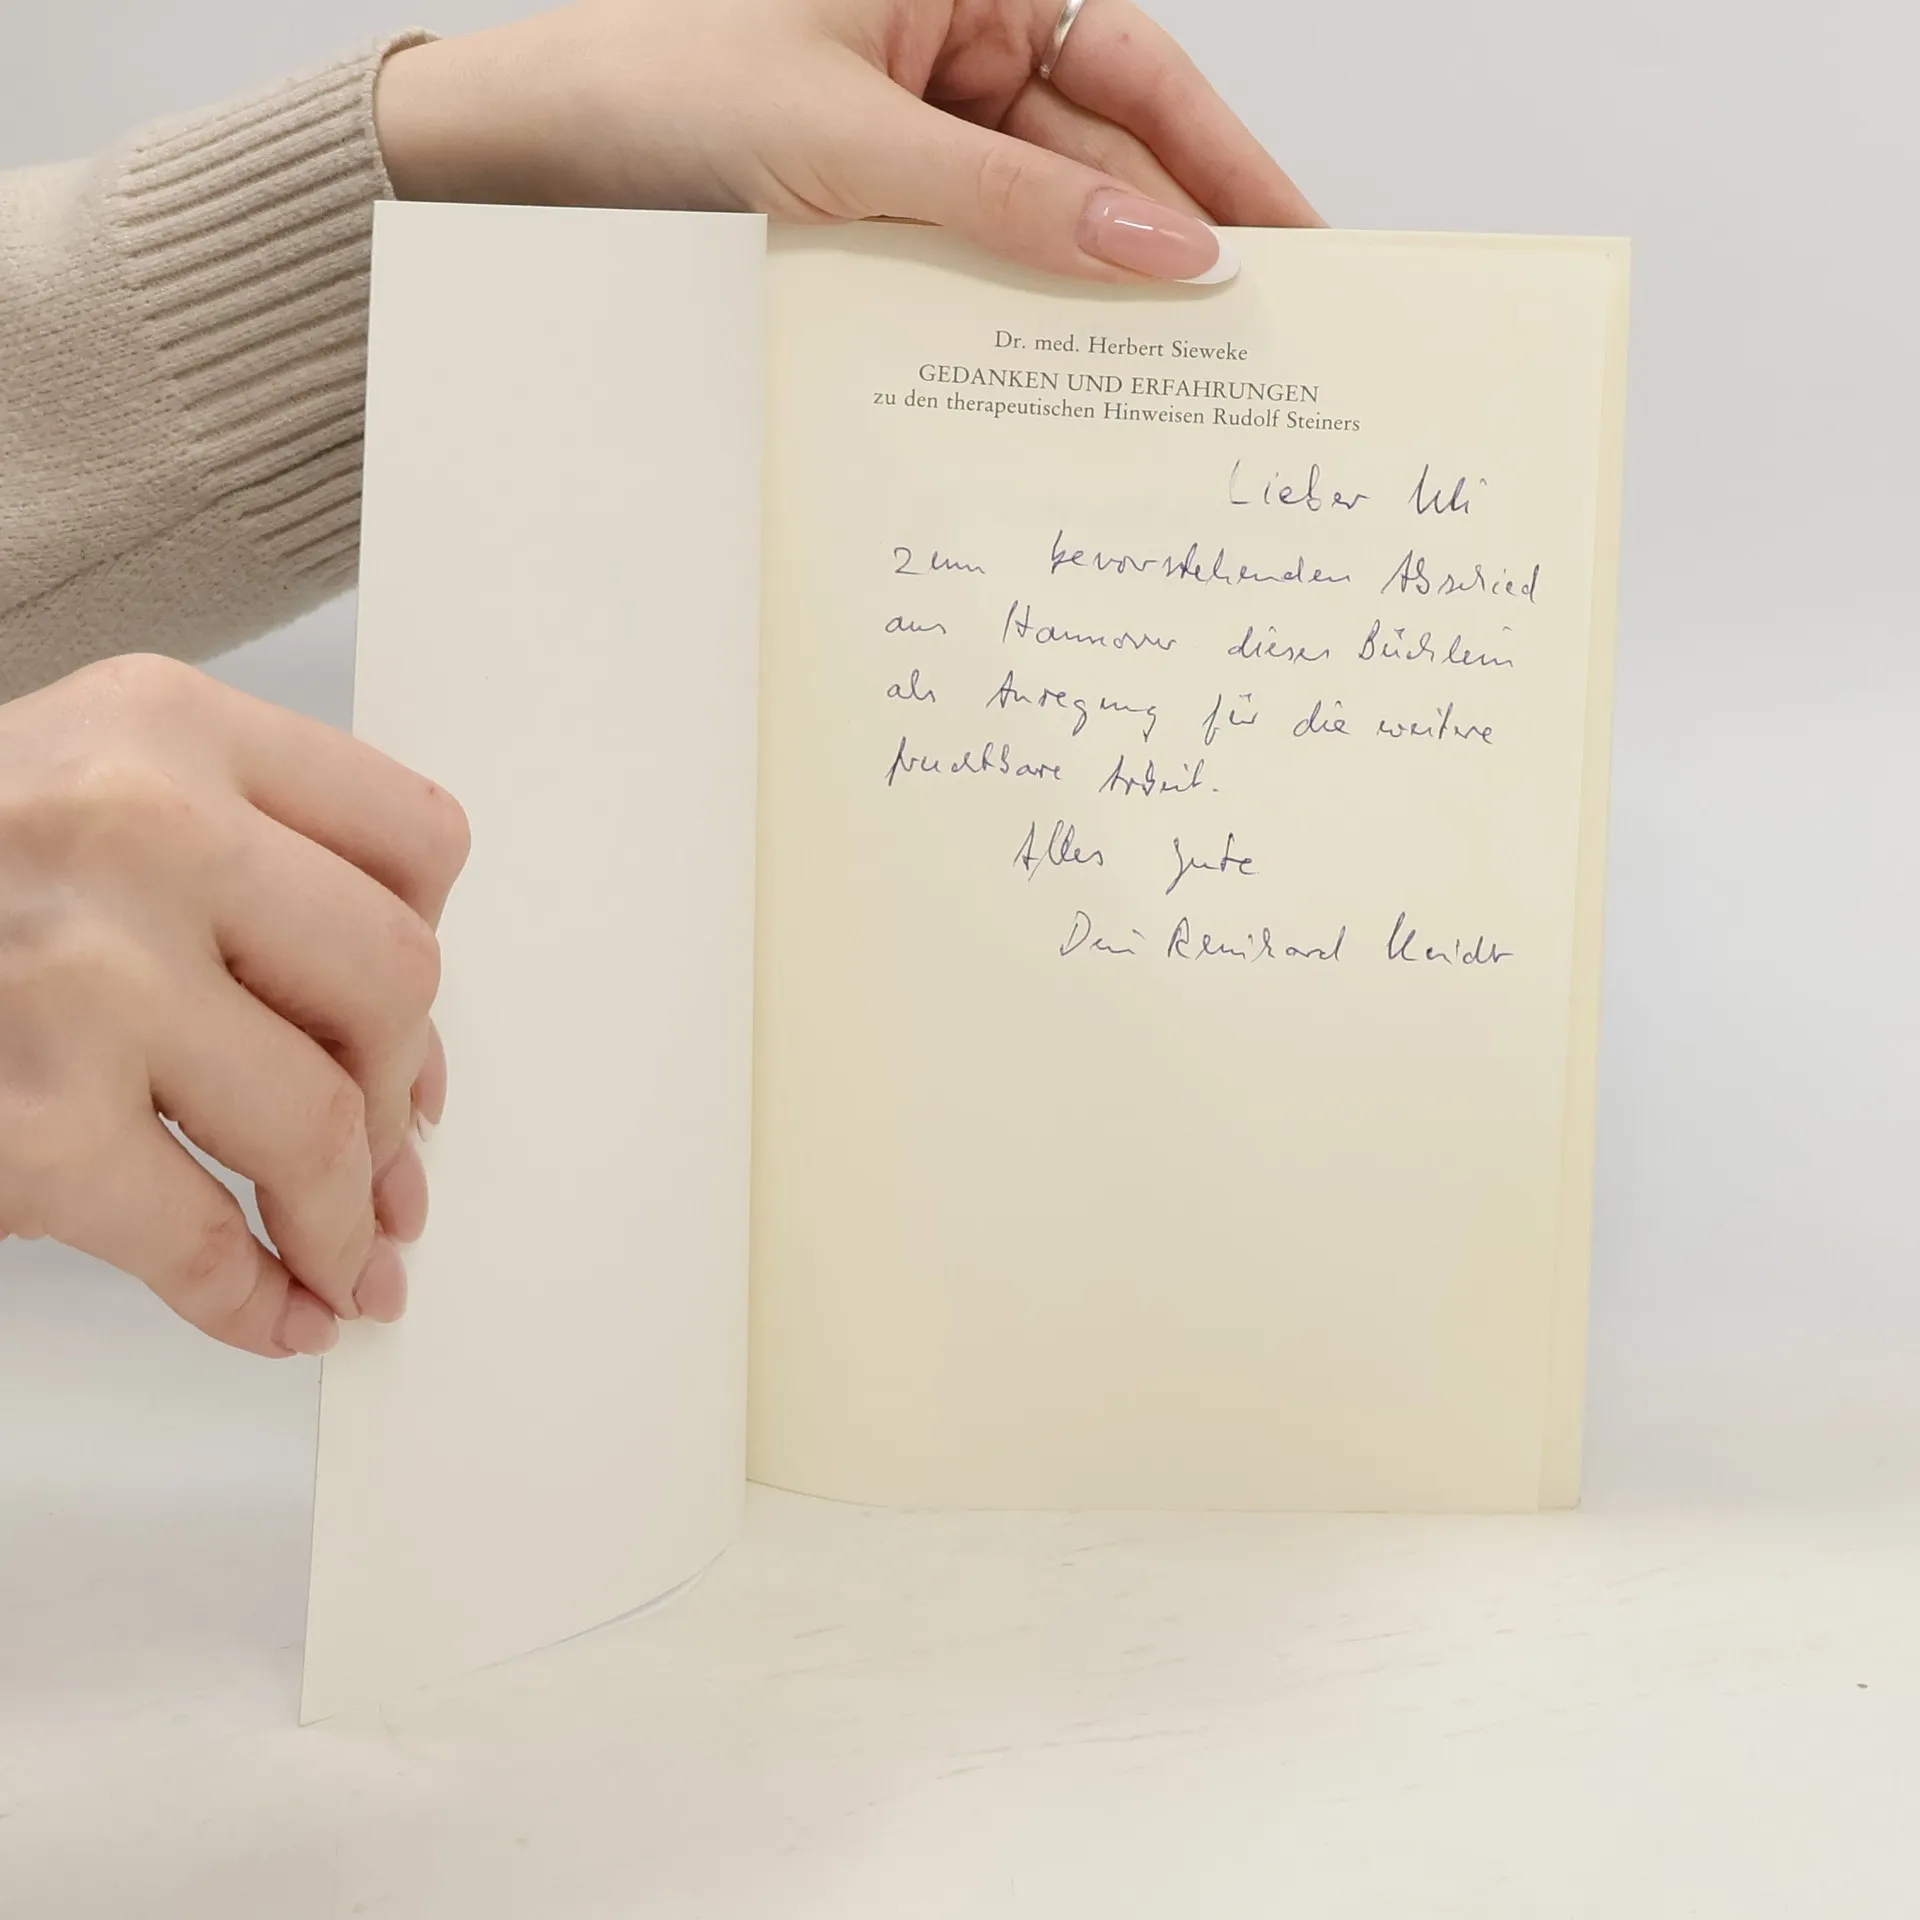 Dr. med. Herbert Sieweke
GEDANKEN UND ERFAHRUNGEN
zu den therapeutischen Hinweisen Rudolf Steiners
Lieber Uli
zum bevorstehenden Abschied
aus Hannover dieses Büchlein
als Anregung für die weitere
fruchtbare Arbeit.
Alles Gute
Dein Reinhard